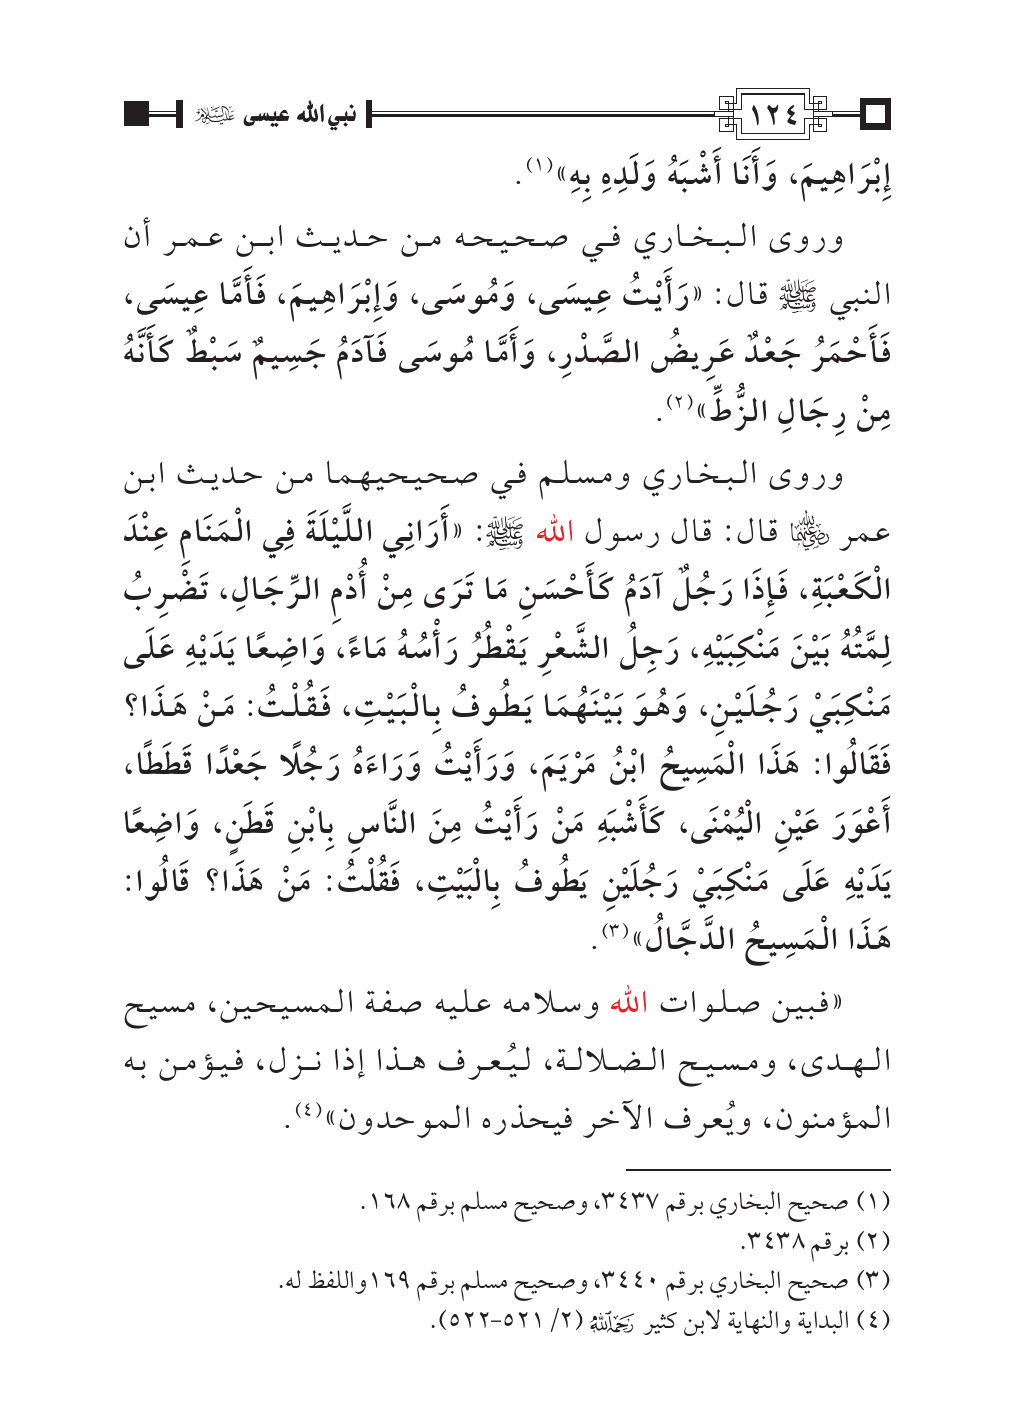 ١٢٤
نبي الله عيسى عليه السلام
إِبْرَاهِيمَ، وَأَنَا أَشْبَهُ وَلَدِهِ بِهِ»(١).
وروى البخاري في صحيحه من حديث ابن عمر أن
النبي ﷺ قال: «رَأَيْتُ عِيسَى، وَمُوسَى، وَإِبْرَاهِيمَ، فَأَمَّا عِيسَى،
فَأَحْمَرُ جَعْدٌ عَرِيضُ الصَّدْرِ، وَأَمَّا مُوسَى فَآدَمُ جَسِيمٌ سَبْطٌ كَأَنَّهُ
مِنْ رِجَالِ الزُّطِّ»(٢).
وروى البخاري ومسلم في صحيحيهما من حديث ابن
عمر رضي الله عنهما قال: قال رسول الله ﷺ: «أَرَانِي اللَّيْلَةَ فِي الْمَنَامِ عِنْدَ
الْكَعْبَةِ، فَإِذَا رَجُلٌ آدَمُ كَأَحْسَنِ مَا تَرَى مِنْ أُدْمِ الرِّجَالِ، تَضْرِبُ
لِمَّتُهُ بَيْنَ مَنْكِبَيْهِ، رَجِلُ الشَّعْرِ يَقْطُرُ رَأْسُهُ مَاءً، وَاضِعًا يَدَيْهِ عَلَى
مَنْكِبَيْ رَجُلَيْنِ، وَهُوَ بَيْنَهُمَا يَطُوفُ بِالْبَيْتِ، فَقُلْتُ: مَنْ هَذَا؟
فَقَالُوا: هَذَا الْمَسِيحُ ابْنُ مَرْيَمَ، وَرَأَيْتُ وَرَاءَهُ رَجُلًا جَعْدًا قَطَطًا،
أَعْوَرَ عَيْنِ الْيُمْنَى، كَأَشْبَهِ مَنْ رَأَيْتُ مِنَ النَّاسِ بِابْنِ قَطَنٍ، وَاضِعًا
يَدَيْهِ عَلَى مَنْكِبَيْ رَجُلَيْنِ يَطُوفُ بِالْبَيْتِ، فَقُلْتُ: مَنْ هَذَا؟ قَالُوا:
هَذَا الْمَسِيحُ الدَّجَّالُ»(٣).
«فبين صلوات الله وسلامه عليه صفة المسيحين، مسيح
الهدى، ومسيح الضلالة، ليُعرف هذا إذا نزل، فيؤمن به
المؤمنون، ويُعرف الآخر فيحذره الموحدون»(٤).
(١) صحيح البخاري برقم ٣٤٣٧، وصحيح مسلم برقم ١٦٨.
(٢) برقم ٣٤٣٨.
(٣) صحيح البخاري برقم ٣٤٤٠، وصحيح مسلم برقم ١٦٩واللفظ له.
(٤) البداية والنهاية لابن كثير رحمه الله (٢/ ٥٢١-٥٢٢).